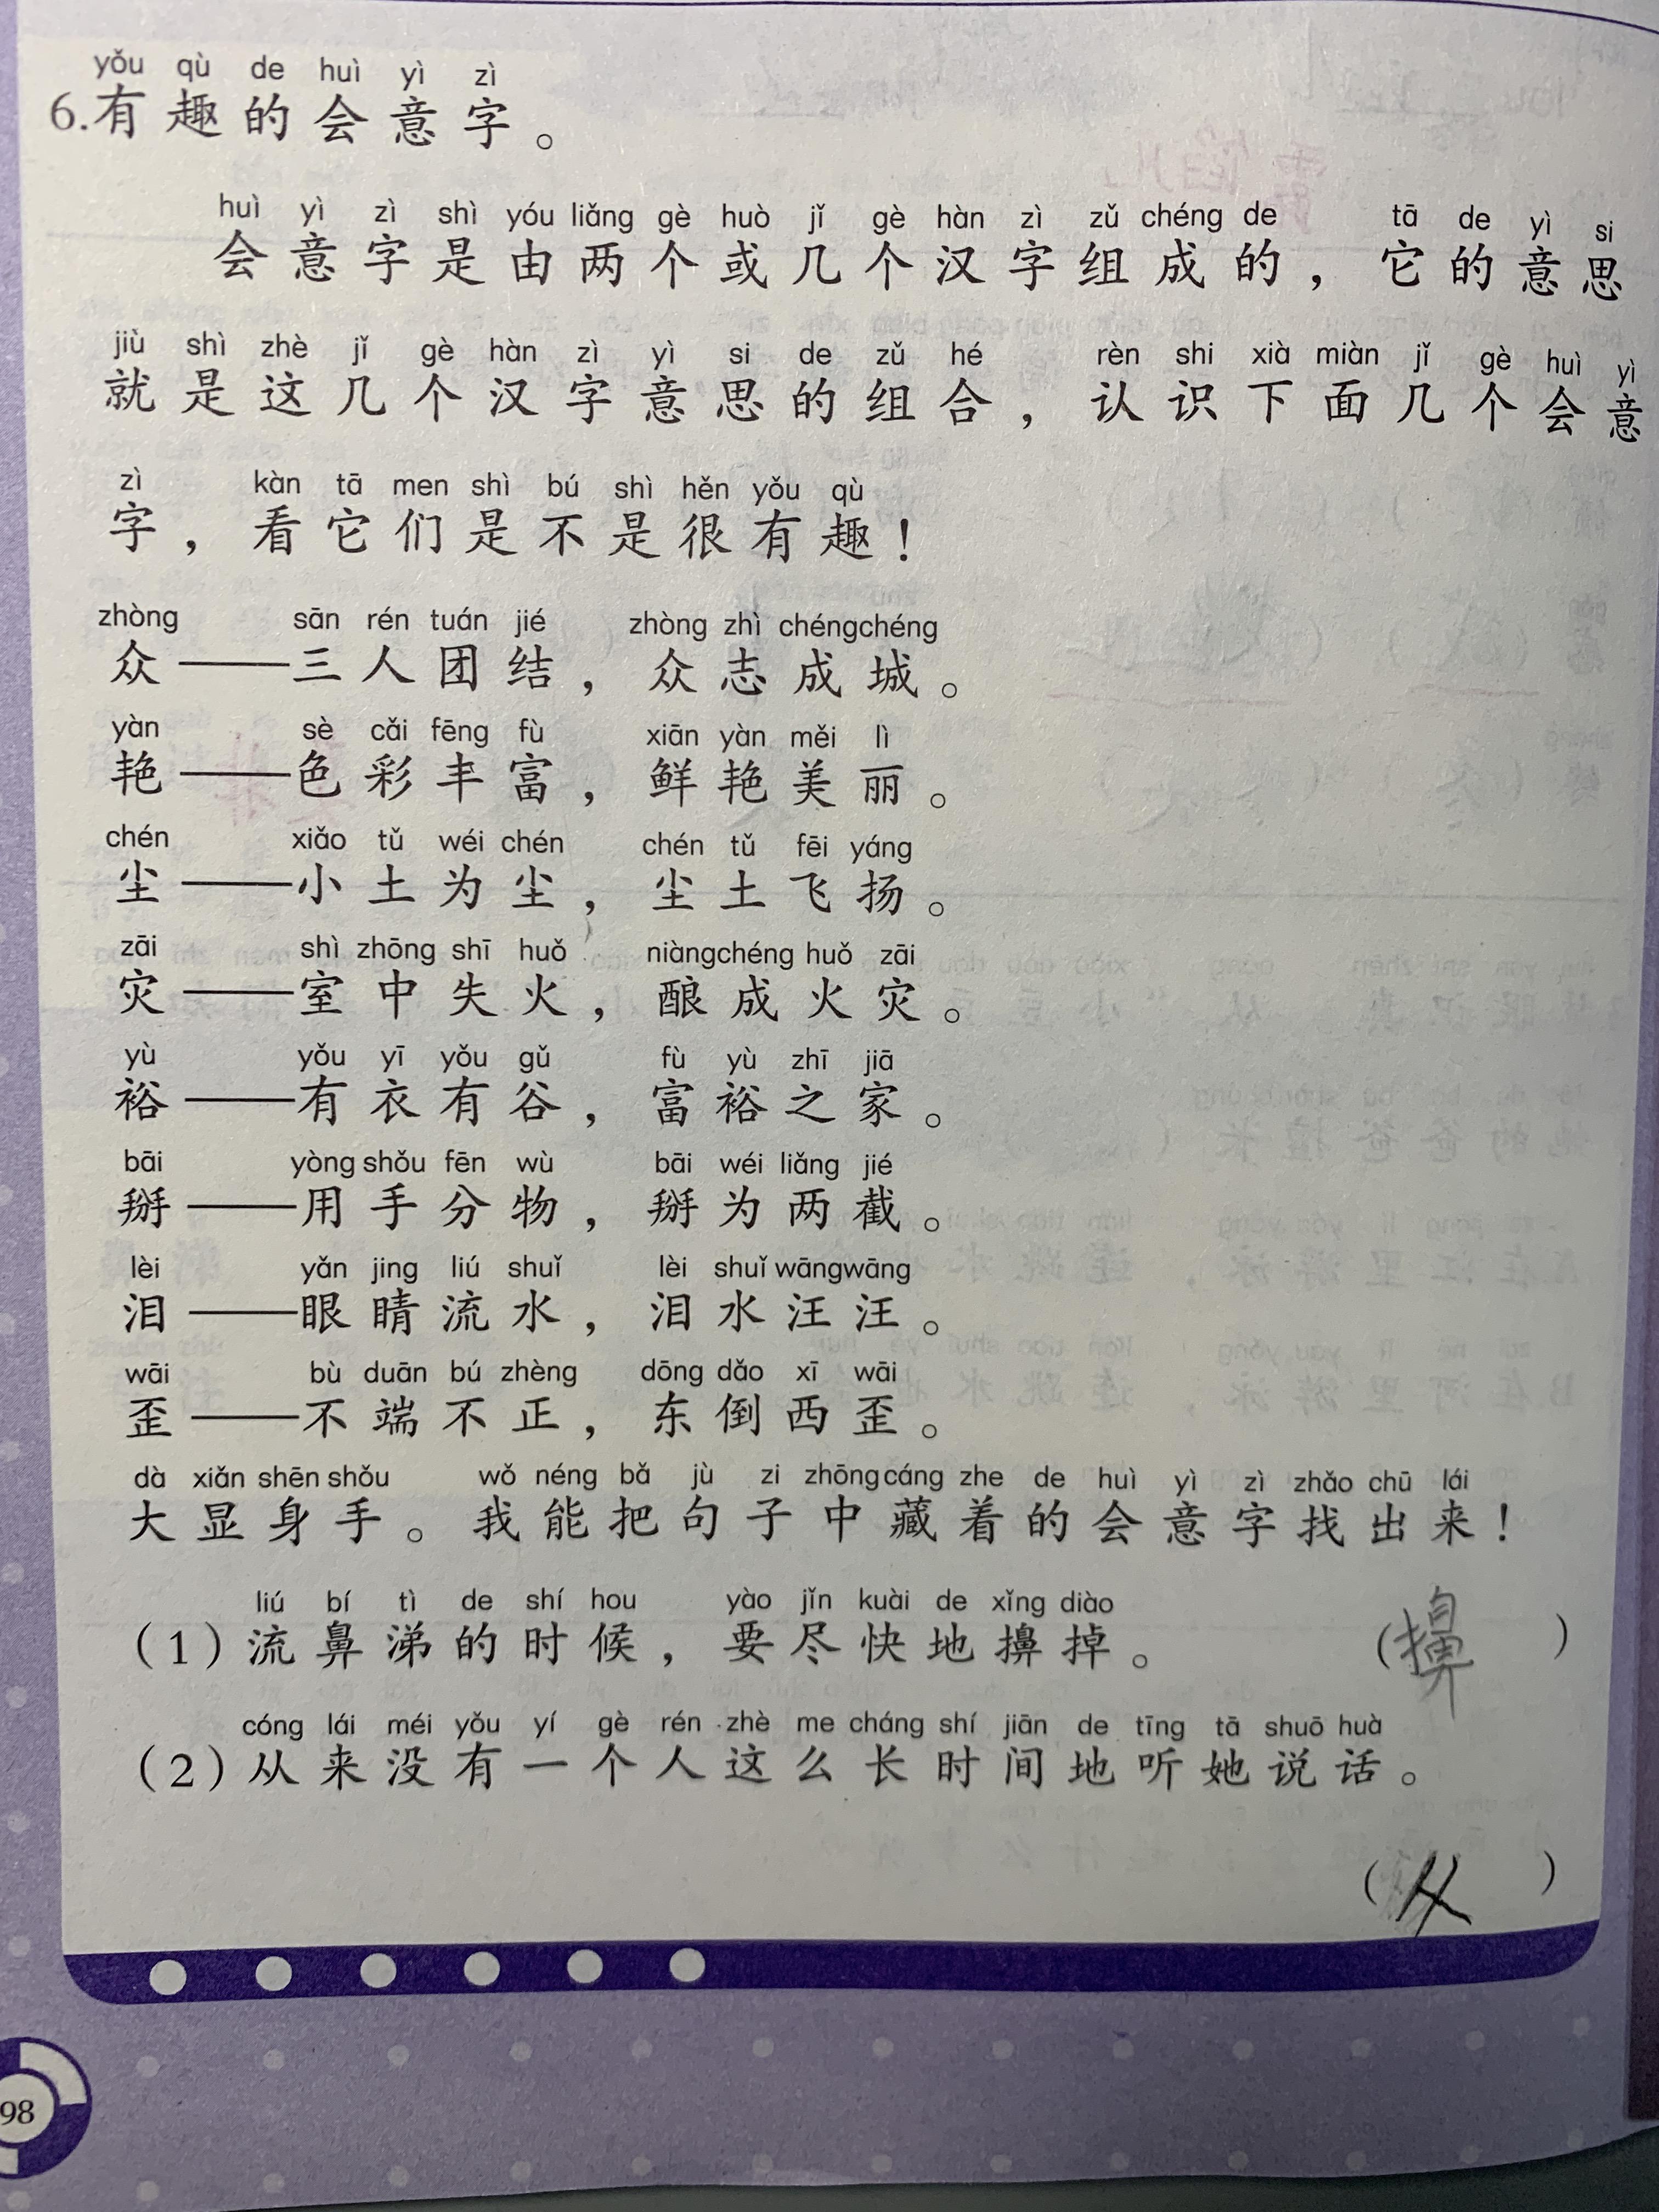 yǒu qù de huì yì zì
6.有趣的会意字。
huì yì zì shì yóu liǎng gè huò jǐ gè hàn zì zǔ chéng de tā de yì si
会意字是由两个或几个汉字组成的，它的意思
jiù shì zhè jǐ gè hàn zì yì si de zǔ hé rèn shi xià miàn jǐ gè huì yì
就是这几个汉字意思的组合，认识下面几个会意
zì kàn tā men shì bú shì hěn yǒu qù
字，看它们是不是很有趣！
zhòng sān rén tuán jié zhòng zhì chéngchéng
众——三人团结，众志成城。
yàn sè cǎi fēng fù xiān yàn měi lì
艳——色彩丰富，鲜艳美丽。
chén xiǎo tǔ wéi chén chén tǔ fēi yáng
尘——小土为尘，尘土飞扬。
zāi shì zhōng shī huǒ niàngchéng huǒ zāi
灾——室中失火，酿成火灾。
yù yǒu yī yǒu gǔ fù yù zhī jiā
裕——有衣有谷，富裕之家。
bāi yòng shǒu fēn wù bāi wéi liǎng jié
掰——用手分物，掰为两截。
lèi yǎn jing liú shuǐ lèi shuǐ wāngwāng
泪——眼睛流水，泪水汪汪。
wāi bù duān bú zhèng dōng dǎo xī wāi
歪——不端不正，东倒西歪。
dà xiǎn shēn shǒu wǒ néng bǎ jù zi zhōng cáng zhe de huì yì zì zhǎo chū lái
大显身手。我能把句子中藏着的会意字找出来！
liú bí tì de shí hou yào jǐn kuài de xǐng diào
（1）流鼻涕的时候，要尽快地擤掉。（擤）
cóng lái méi yǒu yí gè rén zhè me cháng shí jiān de tīng tā shuō huà
（2）从来没有一个人这么长时间地听她说话。
（从）
98